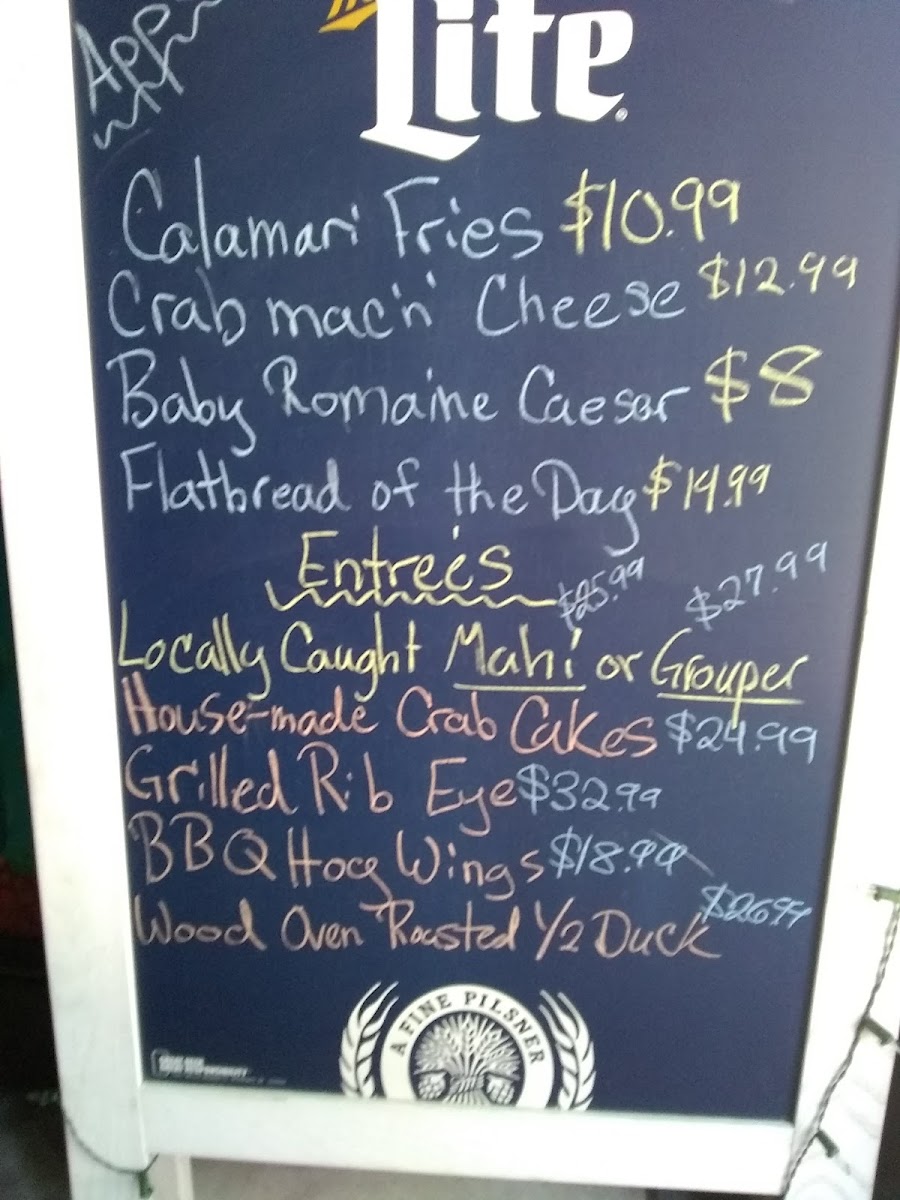 Lite
Calamari Fries $10.99
Crab mac 'n' Cheese $12.99
Baby Romaine Caesar $8
Flatbread of the Day $14.99
Entreés
$25.99 $27.99
Locally Caught Mahi or Grouper
House-made Crab Cakes $24.99
Grilled Rib Eye $32.99
BBQ Hog Wings $18.99
Wood Oven Roasted 1/2 Duck $26.99
A FINE PILSNER